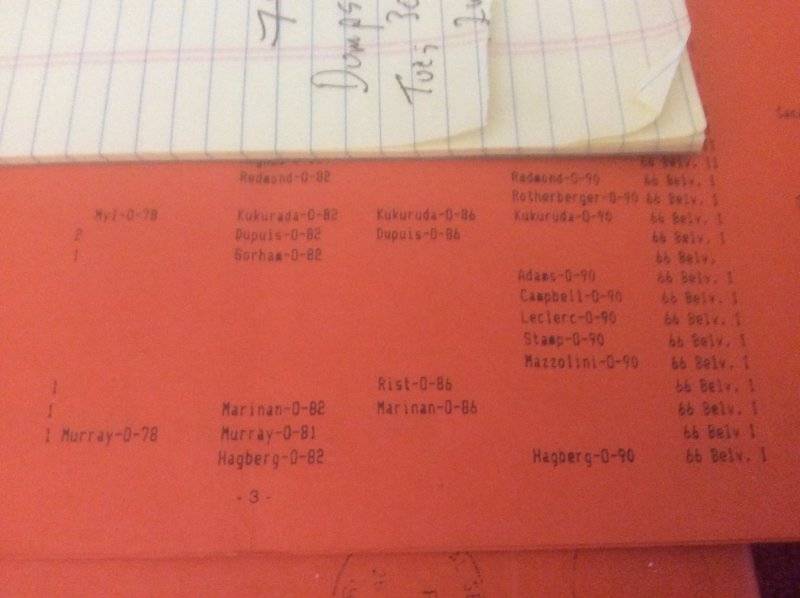 Dumps
Tues
66 Belv. 11
Redmond-O-82 Redmond-O-90 66 Belv. I
Rotherberger-O-90 66 Belv. I
Kukurada-O-82 Kukuruda-O-86 Kukuruda-O-90 66 Belv. I
2 Dupuis-O-82 Dupuis-O-86 66 Belv. I
1 Gorham-O-82 66 Belv.
Adams-O-90 66 Belv. I
Campbell-O-90 66 Belv. I
Leclerc-O-90 66 Belv. I
Stamp-O-90 66 Belv. I
Mazzolini-O-90 66 Belv. I
1 Rist-O-86 66 Belv. I
1 Marinan-O-82 Marinan-O-86 66 Belv. I
1 Murray-O-78 Murray-O-81 66 Belv I
Hagberg-O-82 Hagberg-O-90 66 Belv. I
- 3 -